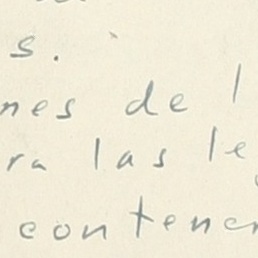 s.
nes de l
ra las le
contener